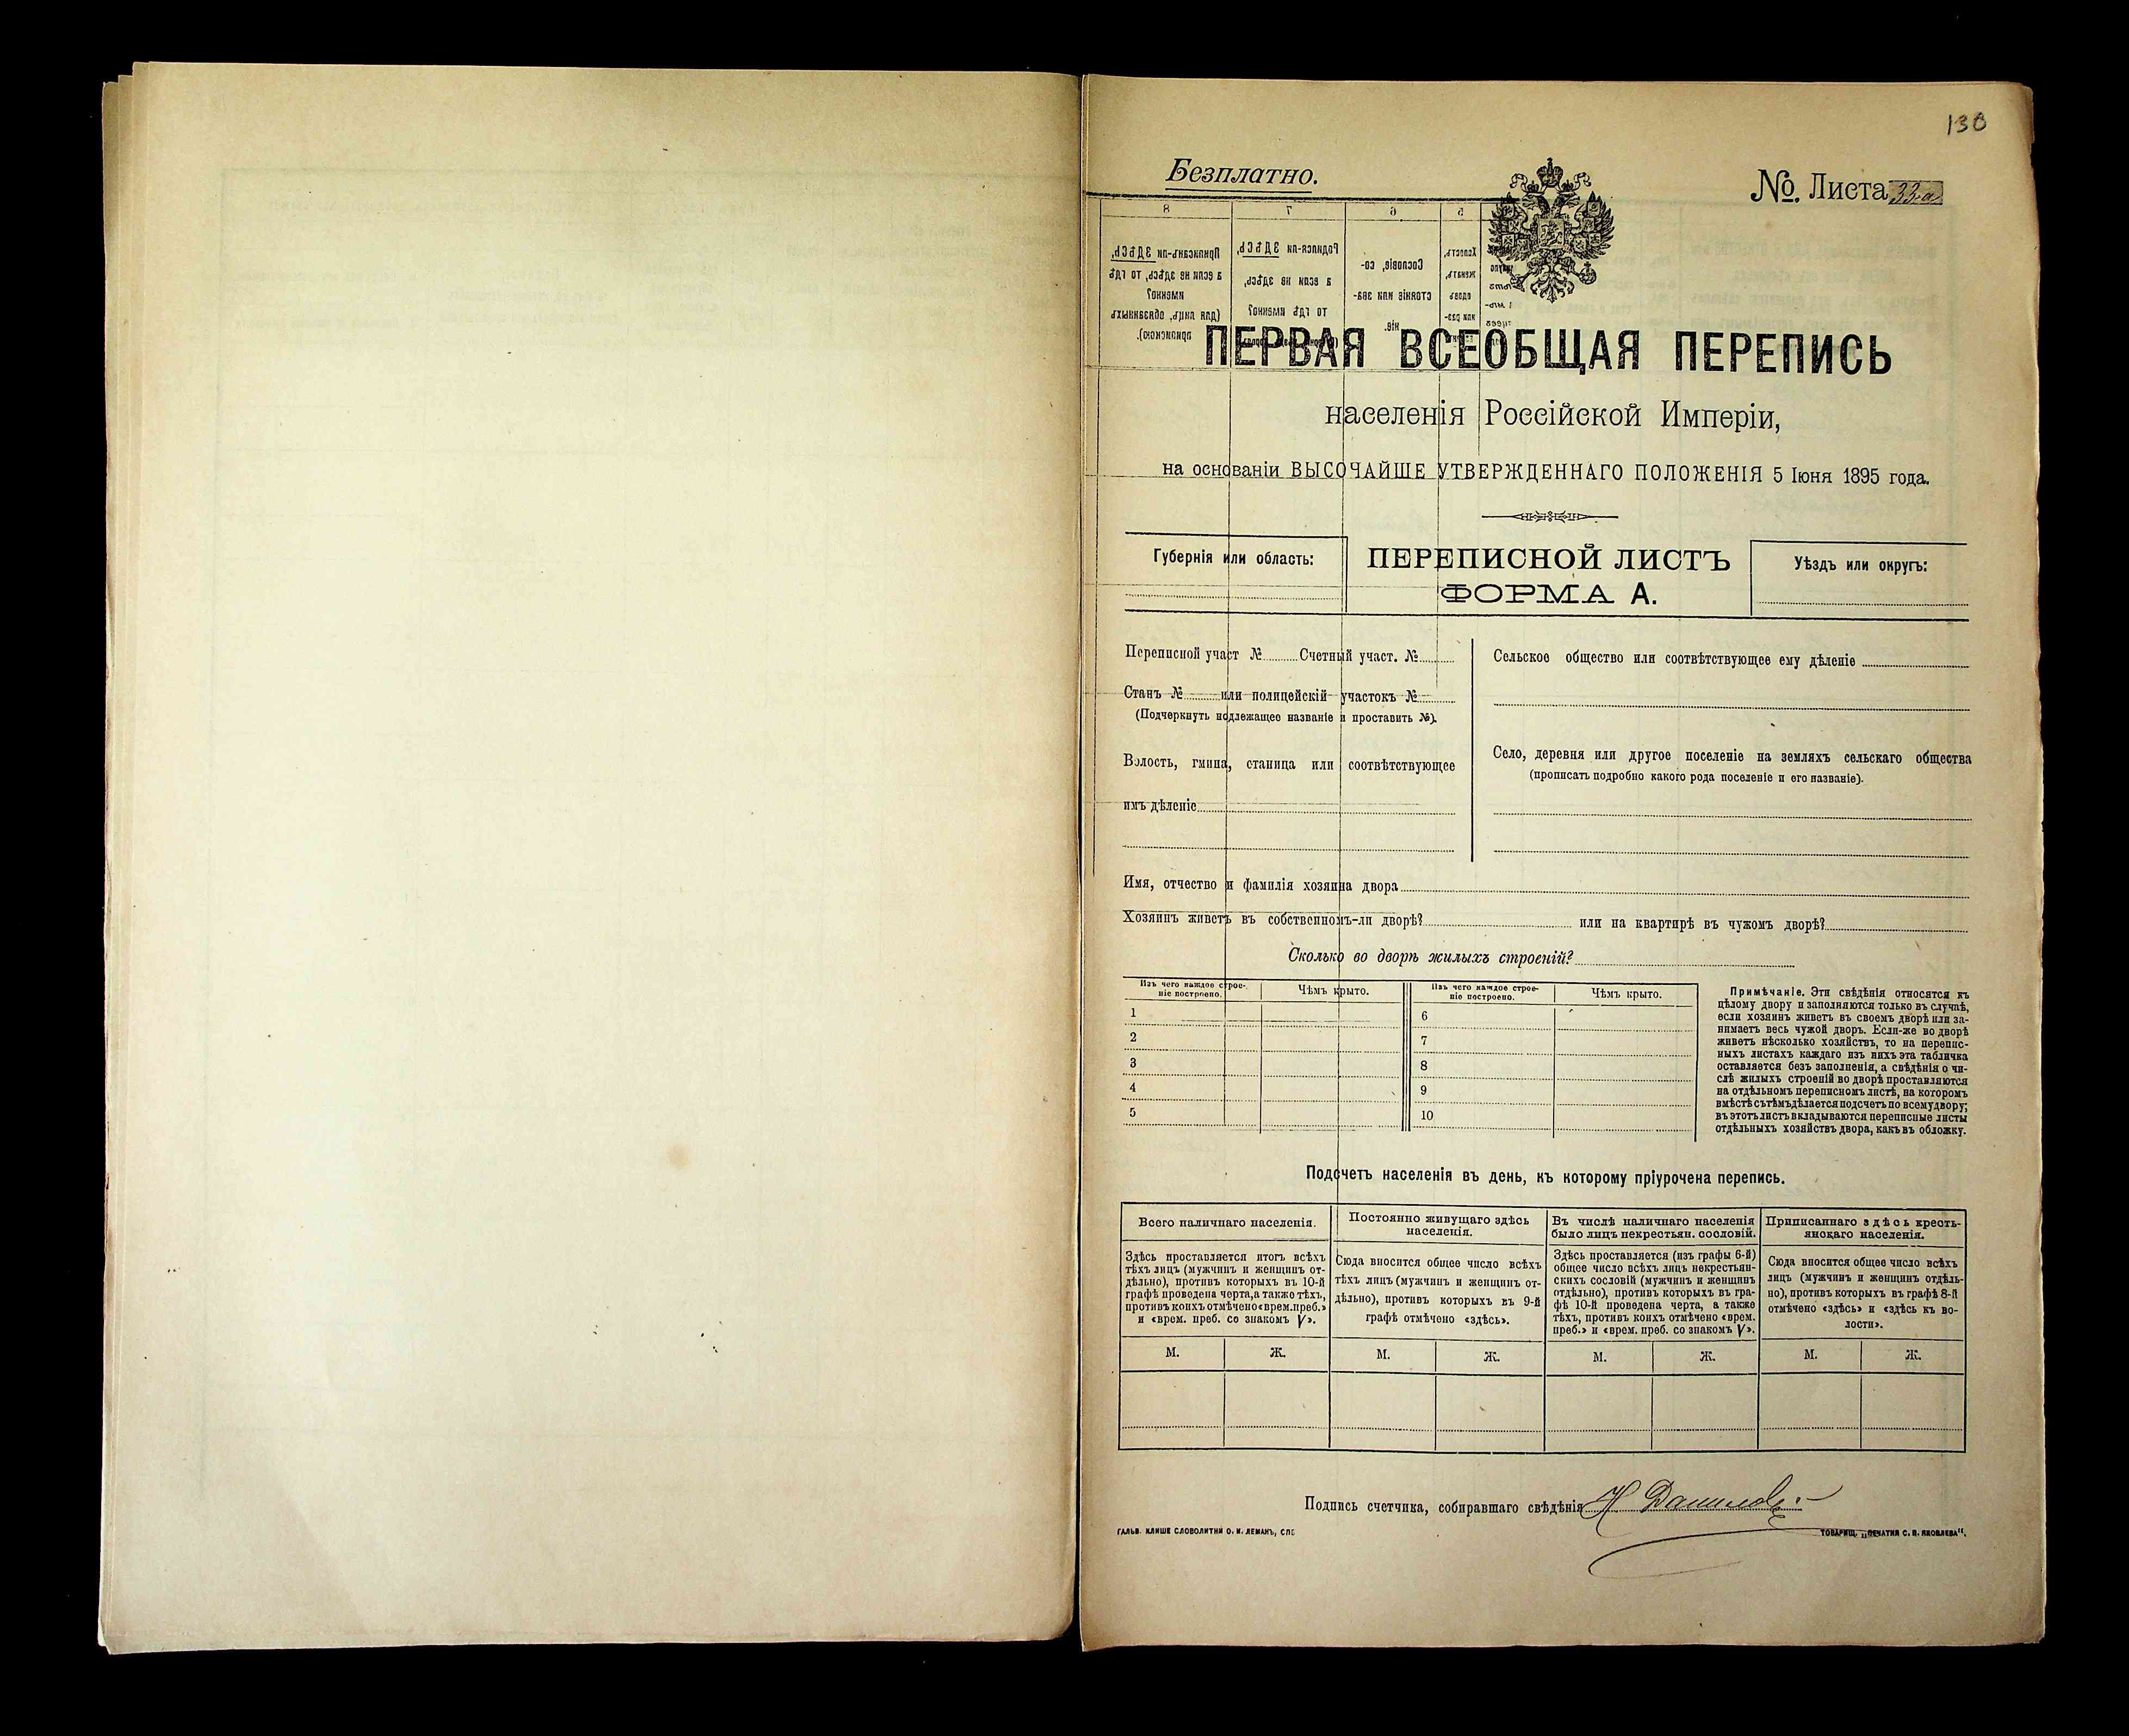 130
Безплатно.
№. Листа 33-а
8 7 6 5
Приписанъ-ли ЗДѢСЬ, а если не здѣсь, то гдѣ именно? (для лицъ, обязанныхъ припискою).
Родился-ли ЗДѢСЬ, а если не здѣсь, то гдѣ именно?
Сословіе, состояніе или званіе.
ПЕРВАЯ ВСЕОБЩАЯ ПЕРЕПИСЬ
населенія Россійской Имперіи,
на основаніи ВЫСОЧАЙШЕ УТВЕРЖДЕННАГО ПОЛОЖЕНІЯ 5 Іюня 1895 года.
Губернія или область:
ПЕРЕПИСНОЙ ЛИСТЪ
ФОРМА А.
Уѣздъ или округъ:
Переписной участ № Счетный участ. №
Станъ № или полицейскій участокъ №
(Подчеркнуть надлежащее названіе и проставить №).
Волость, гмина, станица или соотвѣтствующее
имъ дѣленіе
Сельское общество или соотвѣтствующее ему дѣленіе
Село, деревня или другое поселеніе на земляхъ сельскаго общества
(прописать подробно какого рода поселеніе и его названіе).
Имя, отчество и фамилія хозяина двора
Хозяинъ живетъ въ собственномъ-ли дворѣ? или на квартирѣ въ чужомъ дворѣ?
Сколько во дворѣ жилыхъ строеній?
Изъ чего каждое строе-
ніе построено.
Чѣмъ крыто.
Изъ чего каждое строе-
ніе построено.
Чѣмъ крыто.
1
2
3
4
5
6
7
8
9
10
Примѣчаніе. Эти свѣдѣнія относятся къ
цѣлому двору и заполняются только въ случаѣ,
если хозяинъ живетъ въ своемъ дворѣ или за-
нимаетъ весь чужой дворъ. Если-же во дворѣ
живетъ нѣсколько хозяйствъ, то на перепис-
ныхъ листахъ каждаго изъ нихъ эта табличка
оставляется безъ заполненія, а свѣдѣнія о чи-
слѣ жилыхъ строеній во дворѣ проставляются
на отдѣльномъ переписномъ листѣ, на которомъ
вмѣстѣ съ тѣмъ дѣлается подсчетъ по всему двору;
въ этотъ листъ вкладываются переписные листы
отдѣльныхъ хозяйствъ двора, какъ въ обложку.
Подсчетъ населенія въ день, къ которому пріурочена перепись.
Всего наличнаго населенія.
Здѣсь проставляется итогъ всѣхъ
тѣхъ лицъ (мужчинъ и женщинъ от-
дѣльно), противъ которыхъ въ 10-й
графѣ проведена черта, а также тѣхъ,
противъ коихъ отмѣчено «врем. преб.»
и «врем. преб. со знакомъ V».
Постоянно живущаго здѣсь
населенія.
Сюда вносится общее число всѣхъ
тѣхъ лицъ (мужчинъ и женщинъ от-
дѣльно), противъ которыхъ въ 9-й
графѣ отмѣчено «здѣсь».
Въ числѣ наличнаго населенія
было лицъ некрестьян. сословій.
Здѣсь проставляется (изъ графы 6-й)
общее число всѣхъ лицъ некрестьян-
скихъ сословій (мужчинъ и женщинъ
отдѣльно), противъ которыхъ въ гра-
фѣ 10-й проведена черта, а также
тѣхъ, противъ коихъ отмѣчено «врем.
преб.» и «врем. преб. со знакомъ V».
Приписаннаго здѣсь кресть-
янскаго населенія.
Сюда вносится общее число всѣхъ
лицъ (мужчинъ и женщинъ отдѣль-
но), противъ которыхъ въ графѣ 8-й
отмѣчено «здѣсь» и «здѣсь къ во-
лости».
М. Ж. М. Ж. М. Ж. М. Ж.
Подпись счетчика, собиравшаго свѣдѣнія Н Даниловъ
ГАЛЬВ. КЛИШЕ СЛОВОЛИТНИ О. И. ЛЕМАНЪ, СПБ
ТОВАРИЩ. „ПЕЧАТНЯ С. П. ЯКОВЛЕВА".